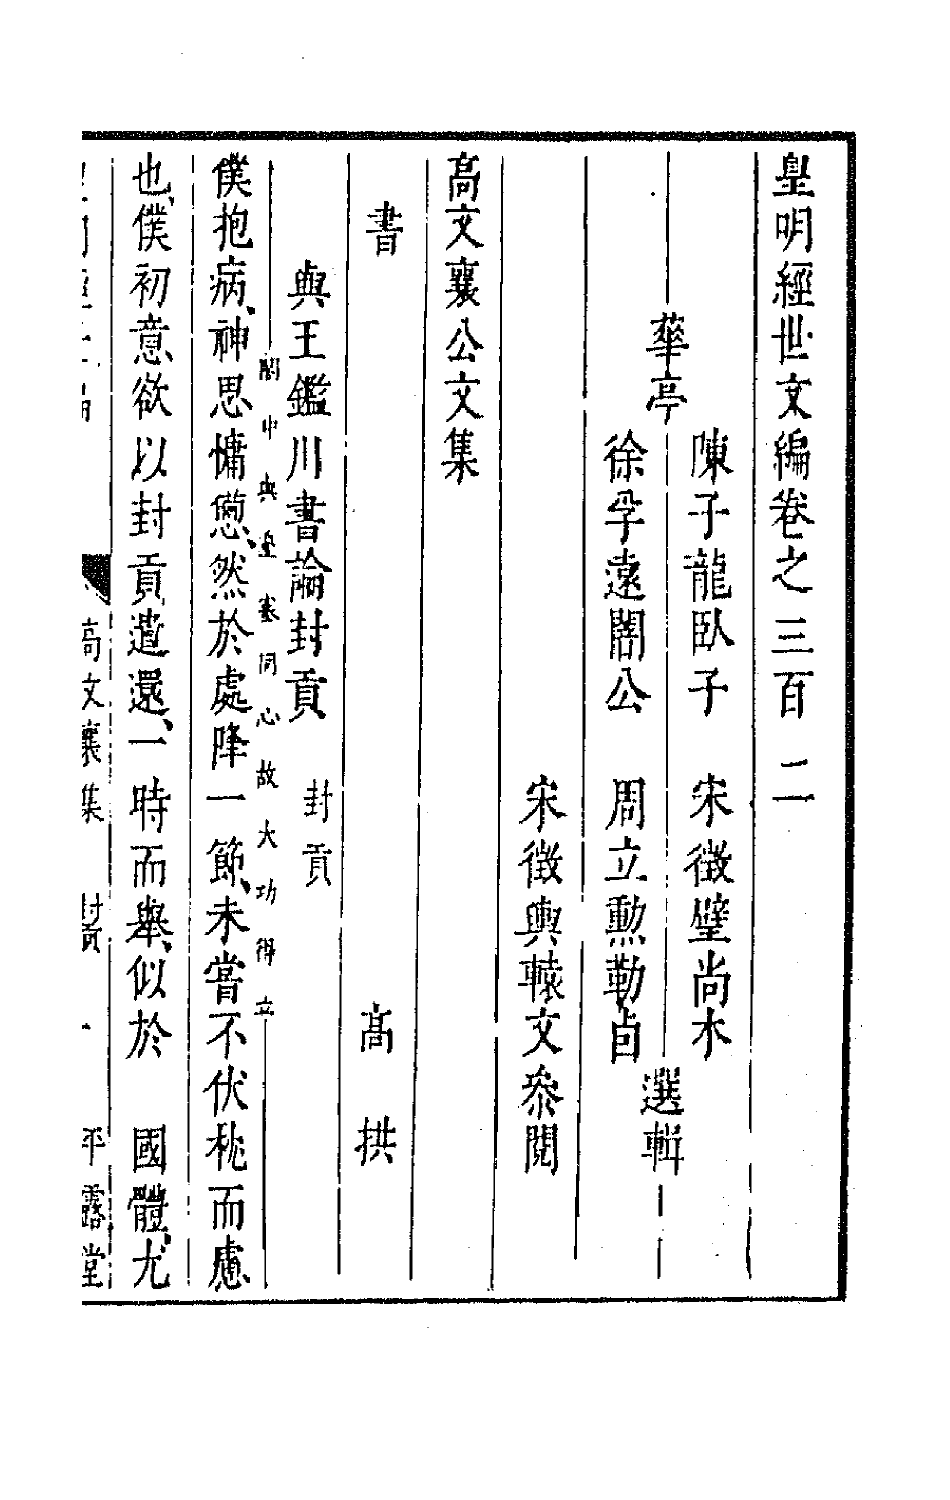 皇明經世文編卷之三百二
華亭
陳子龍臥子　宋徵璧尚木
徐孚遠闇公　周立勳勒卣
選輯
宋徵輿轅文叅閱
高文襄公文集
書　高拱
與王鑑川書論封貢　封貢
閣中與邊塞同心故大功得立
僕抱病、神思慵憊、然於處降一節、未嘗不伏枕而慮
也、僕初意欲以封貢遣還、一時而舉、似於　國體、尤
高文襄集　封貢　平露堂